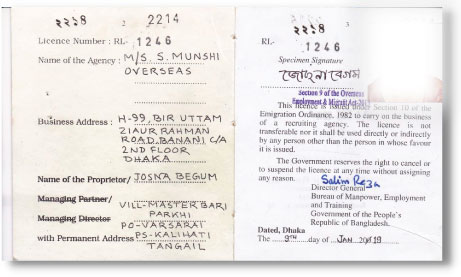 ২২১৪ 2 2214
Licence Number : RL- 1246
Name of the Agency : M/S S. MUNSHI
OVERSEAS
Business Address : H-99, BIR UTTAM
ZIAUR RAHMAN
ROAD, BANANI C/A
2ND FLOOR
DHAKA
Name of the Proprietor/ JOSNA BEGUM
Managing Partner/
Managing Director VILL-MASTER BARI
PARKHI
with Permanent Address PO-VARSARAI
PS-KALIHATI
TANGAIL
২২১৪ 3
RL- 1246
Specimen Signature
Section 9 of the Overseas
Employment & Migrant Act-2013
This licence is issued under Section 10 of the
Emigration Ordinance, 1982 to carry on the business
of a recruiting agency. The licence is not
transferable nor it shall be used directly or indirectly
by any other person other than in whose favour
it is issued.
The Government reserves the right to cancel or
to suspend the licence at any time without assigning
any reason. Salim Reza
Director General
Bureau of Manpower, Employment
and Training
Government of the People's
Republic of Bangladesh.
Dated, Dhaka
The 9TH day of JAN 2019